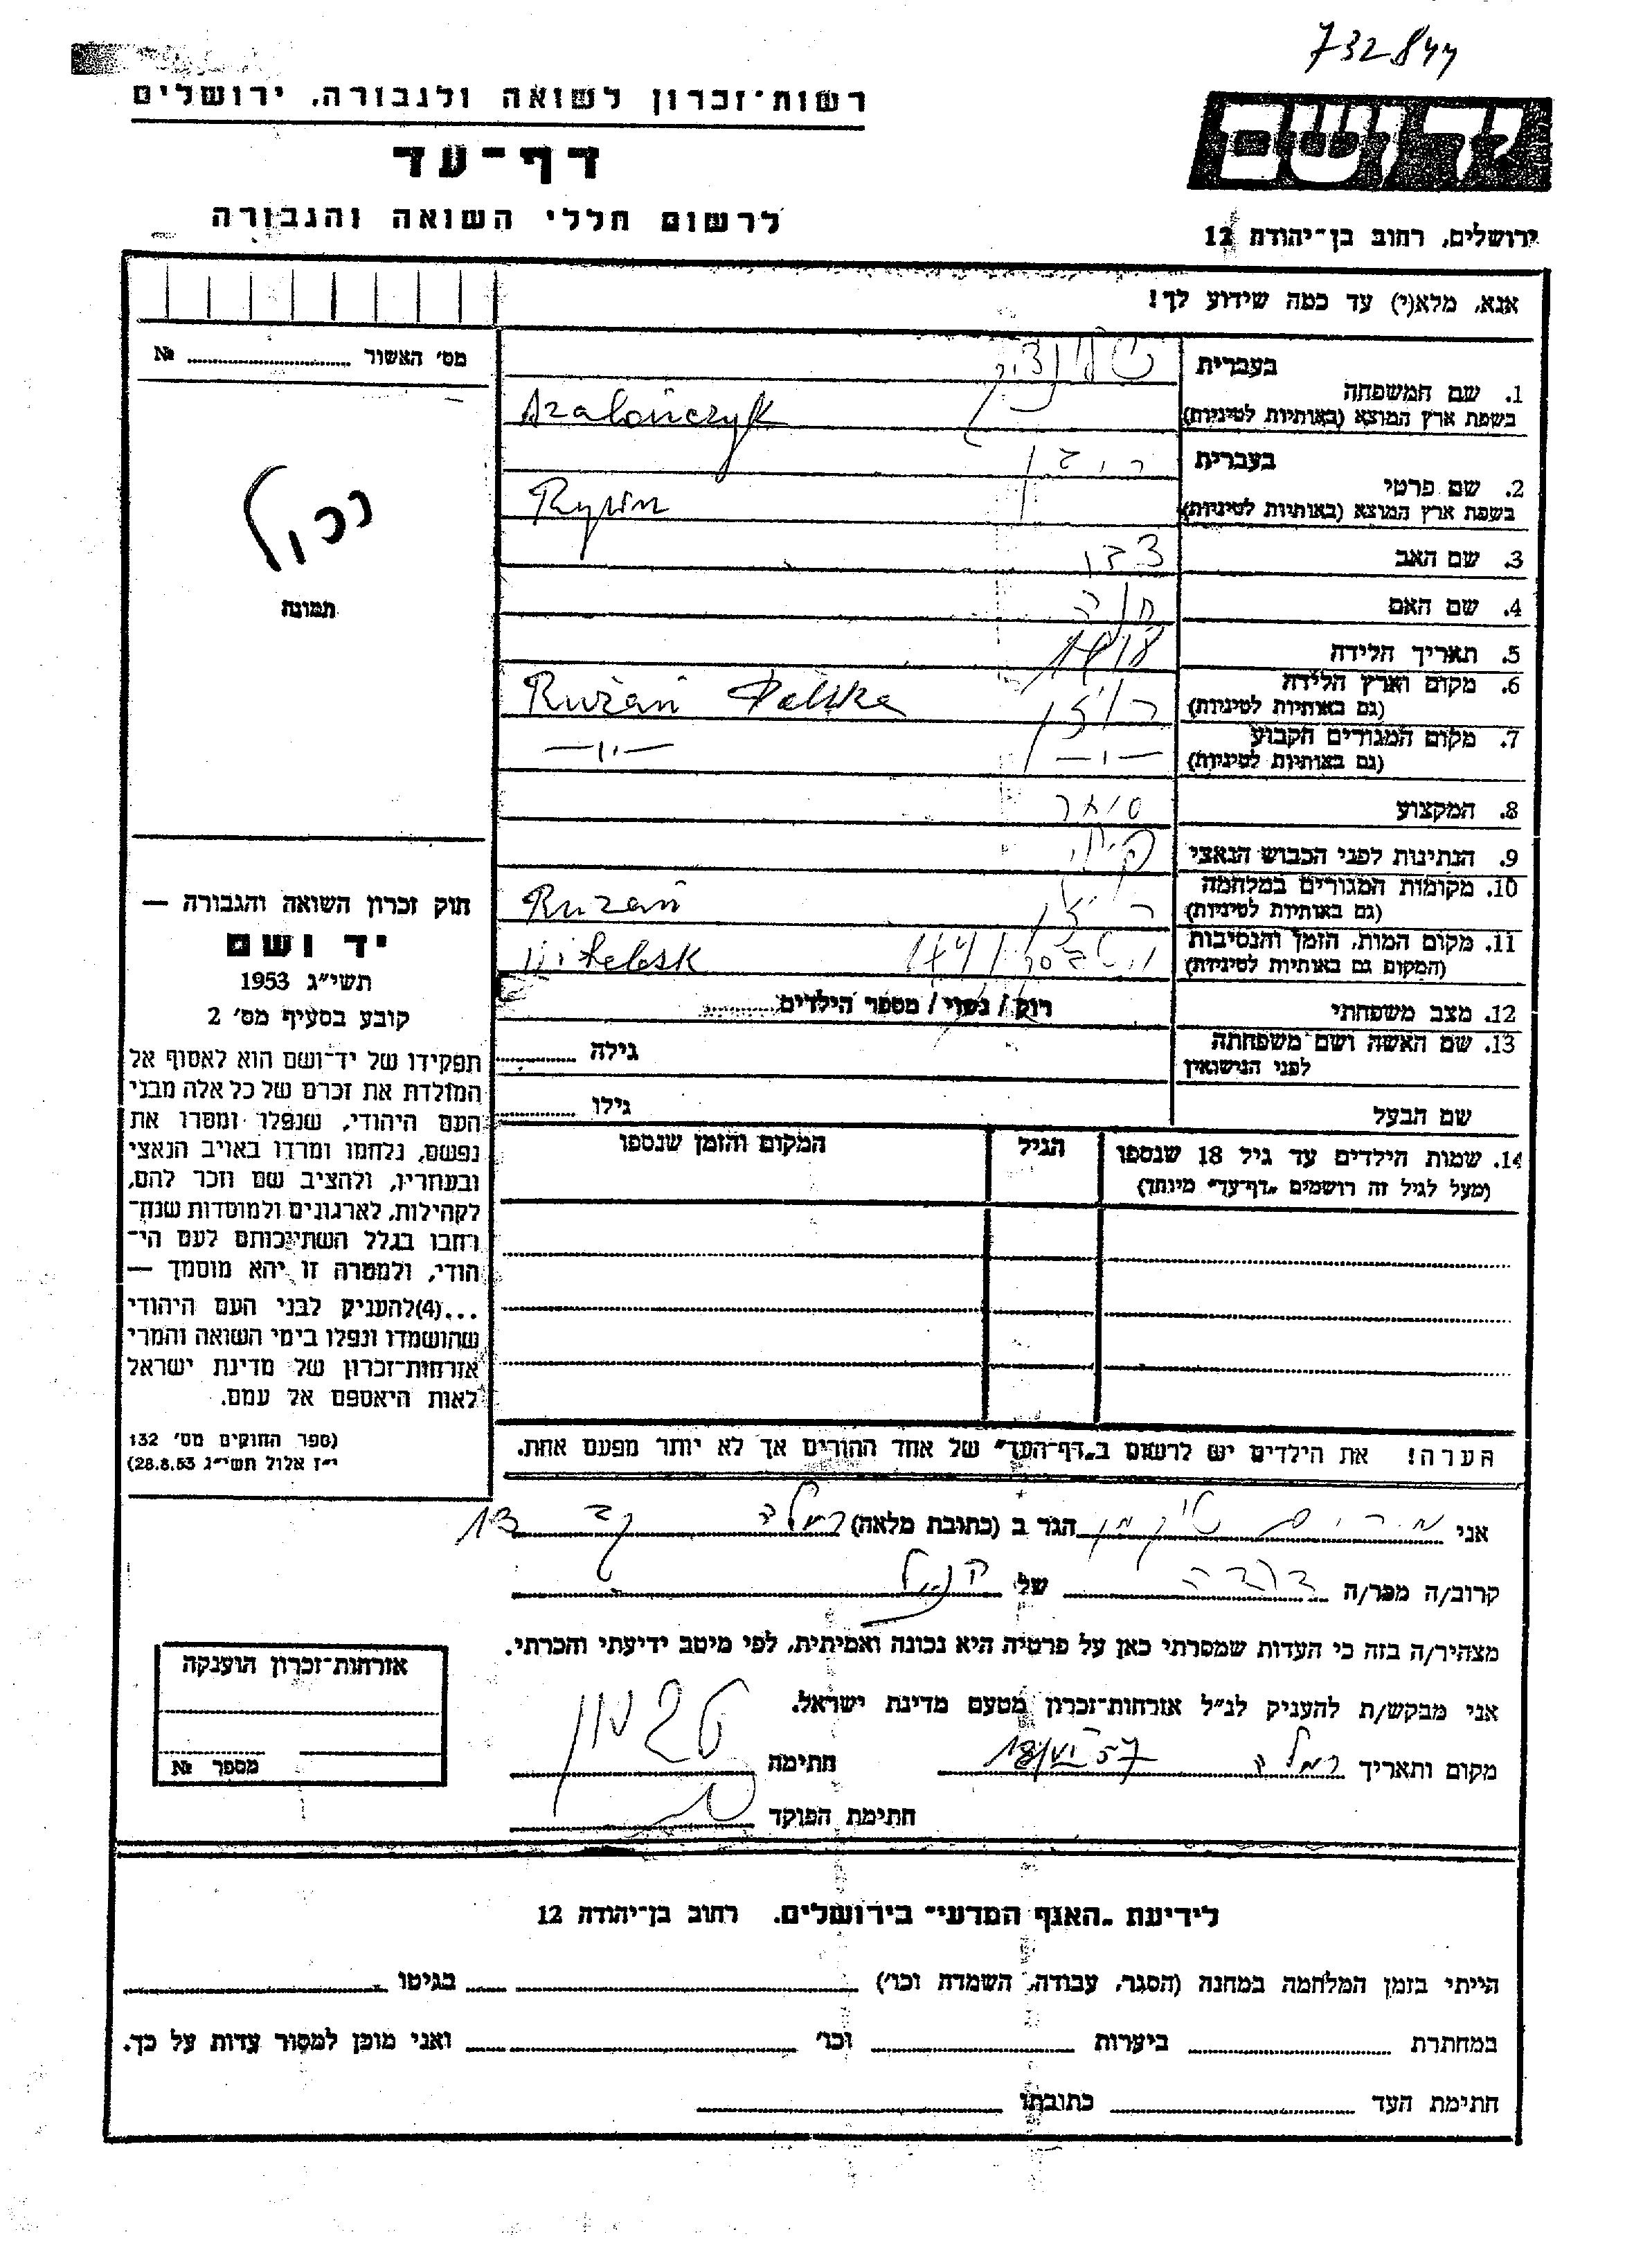 732844
רשות־זכרון לשואה ולגבורה, ירושלים
דף־עד
לרשום חללי השואה והגבורה
יד ושם
ירושלים, רחוב בן־יהודה 12
אנא, מלא(י) עד כמה שידוע לך!
מס׳ האשור № 
נכול
תמונה
חוק זכרון השואה והגבורה —
יד ושם
תשי״ג 1953
קובע בסעיף מס׳ 2
תפקידו של יד־ושם הוא לאסוף אל
המולדת את זכרם של כל אלה מבני
העם היהודי, שנפלו ומסרו את
נפשם, נלחמו ומרדו באויב הנאצי
ובעוזריו, ולהציב שם וזכר להם,
לקהילות, לארגונים ולמוסדות שנח־
רחבו בגלל השתייכותם לעם הי־
הודי, ולמטרה זו יהא מוסמך —
...(4)להעניק לבני העם היהודי
שהושמדו ונפלו בימי השואה והמרי
אזרחות־זכרון של מדינת ישראל
לאות היאספם אל עמם.
(ספר החוקים מס׳ 132
י״ז אלול תשי״ג 28.8.53)
בעברית
1. שם המשפחה
בשפת ארץ המוצא (באותיות לטיניות) Szalończyk
בעברית ריבן
2. שם פרטי
בשפת ארץ המוצא (באותיות לטיניות)
3. שם האב
4. שם האם חוה
5. תאריך הלידה
6. מקום וארץ הלידה
(גם באותיות לטיניות) רוז׳ן Rużań Polska
7. מקום המגורים הקבוע
(גם באותיות לטיניות) —״— —״—
8. המקצוע סוחר
9. הנתינות לפני הכבוש הנאצי
10. מקומות המגורים במלחמה
(גם באותיות לטיניות) רוז׳ן Rużań
11. מקום המות, הזמן והנסיבות
(המקום גם באותיות לטיניות) ויטבסק 1941 Witebsk
12. מצב משפחתי רוק / נשוי / מספר הילדים
13. שם האשה ושם משפחתה
לפני הנישואין גילה
שם הבעל גילו
14. שמות הילדים עד גיל 18 שנספו הגיל המקום והזמן שנספו
(מעל לגיל זה רושמים „דף־עד״ מיוחד)
הערה! את הילדים יש לרשום ב„דף־העד״ של אחד ההורים אך לא יותר מפעם אחת.
אני מרים הגר ב (כתובת מלאה) רמלה 13
קרוב/ה מכר/ה דודה של
מצהיר/ה בזה כי העדות שמסרתי כאן על פרטיה היא נכונה ואמיתית, לפי מיטב ידיעתי והכרתי.
אני מבקש/ת להעניק לנ״ל אזרחות־זכרון מטעם מדינת ישראל.
מקום ותאריך רמלה 18/VI 57 חתימה
חתימת הפוקד
אזרחות־זכרון הוענקה
מספר №
לידיעת „האגף המדעי״ בירושלים. רחוב בן־יהודה 12
הייתי בזמן המלחמה במחנה (הסגר, עבודה, השמדה וכו׳) בגיטו
במחתרת ביערות וכו׳ ואני מוכן למסור עדות על כך.
חתימת העד כתובתו